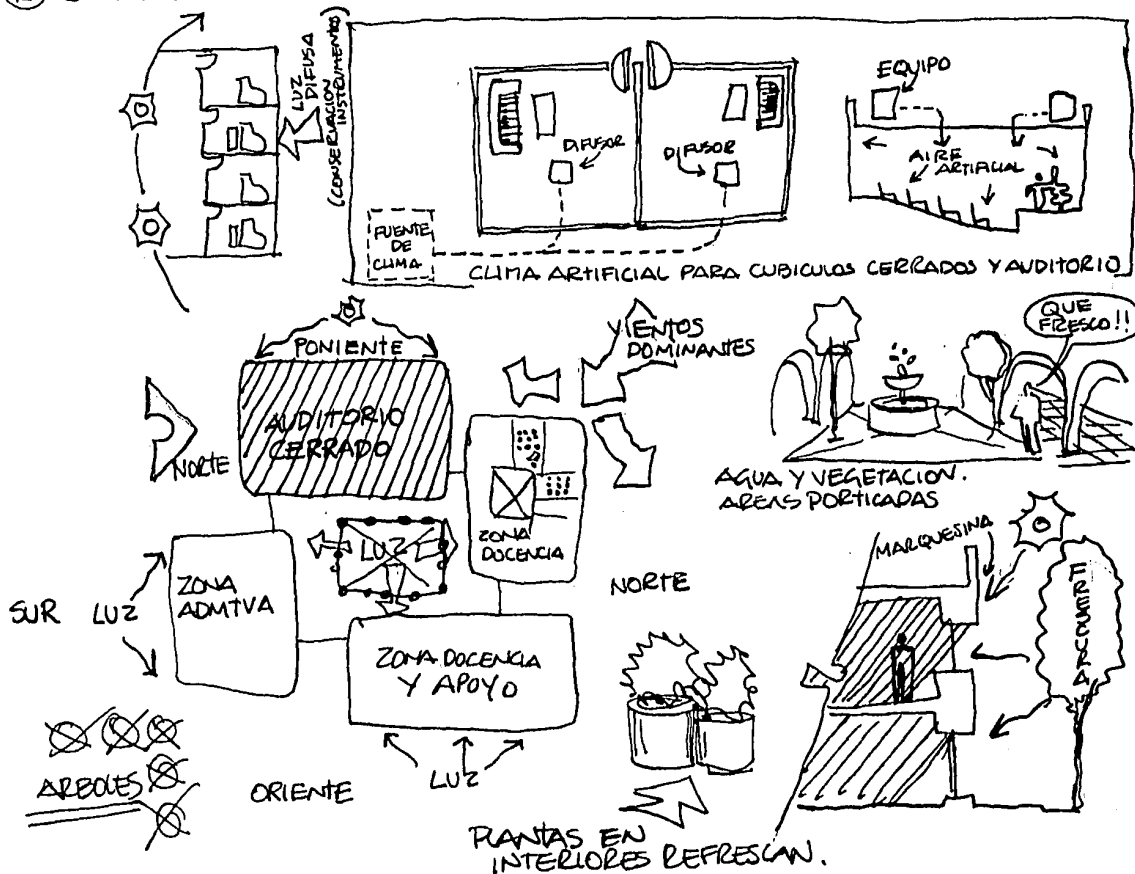 LUZ
DIFUSA
(CONSERVACION
INSTRUMENTOS)
DIFUSOR
DIFUSOR
FUENTE
DE
CLIMA
EQUIPO
AIRE
ARTIFICIAL
CLIMA ARTIFICIAL PARA CUBICULOS CERRADOS Y AUDITORIO
PONIENTE
AUDITORIO
CERRADO
NORTE
VIENTOS
DOMINANTES
ZONA
DOCENCIA
LUZ
ZONA
ADMTVA
SUR LUZ
ZONA DOCENCIA
Y APOYO
LUZ
ARBOLES
ORIENTE
NORTE
QUE
FRESCO!!
AGUA Y VEGETACION.
AREAS PORTICADAS
MARQUESINA
FRESCURA
PLANTAS EN
INTERIORES REFRESCAN.